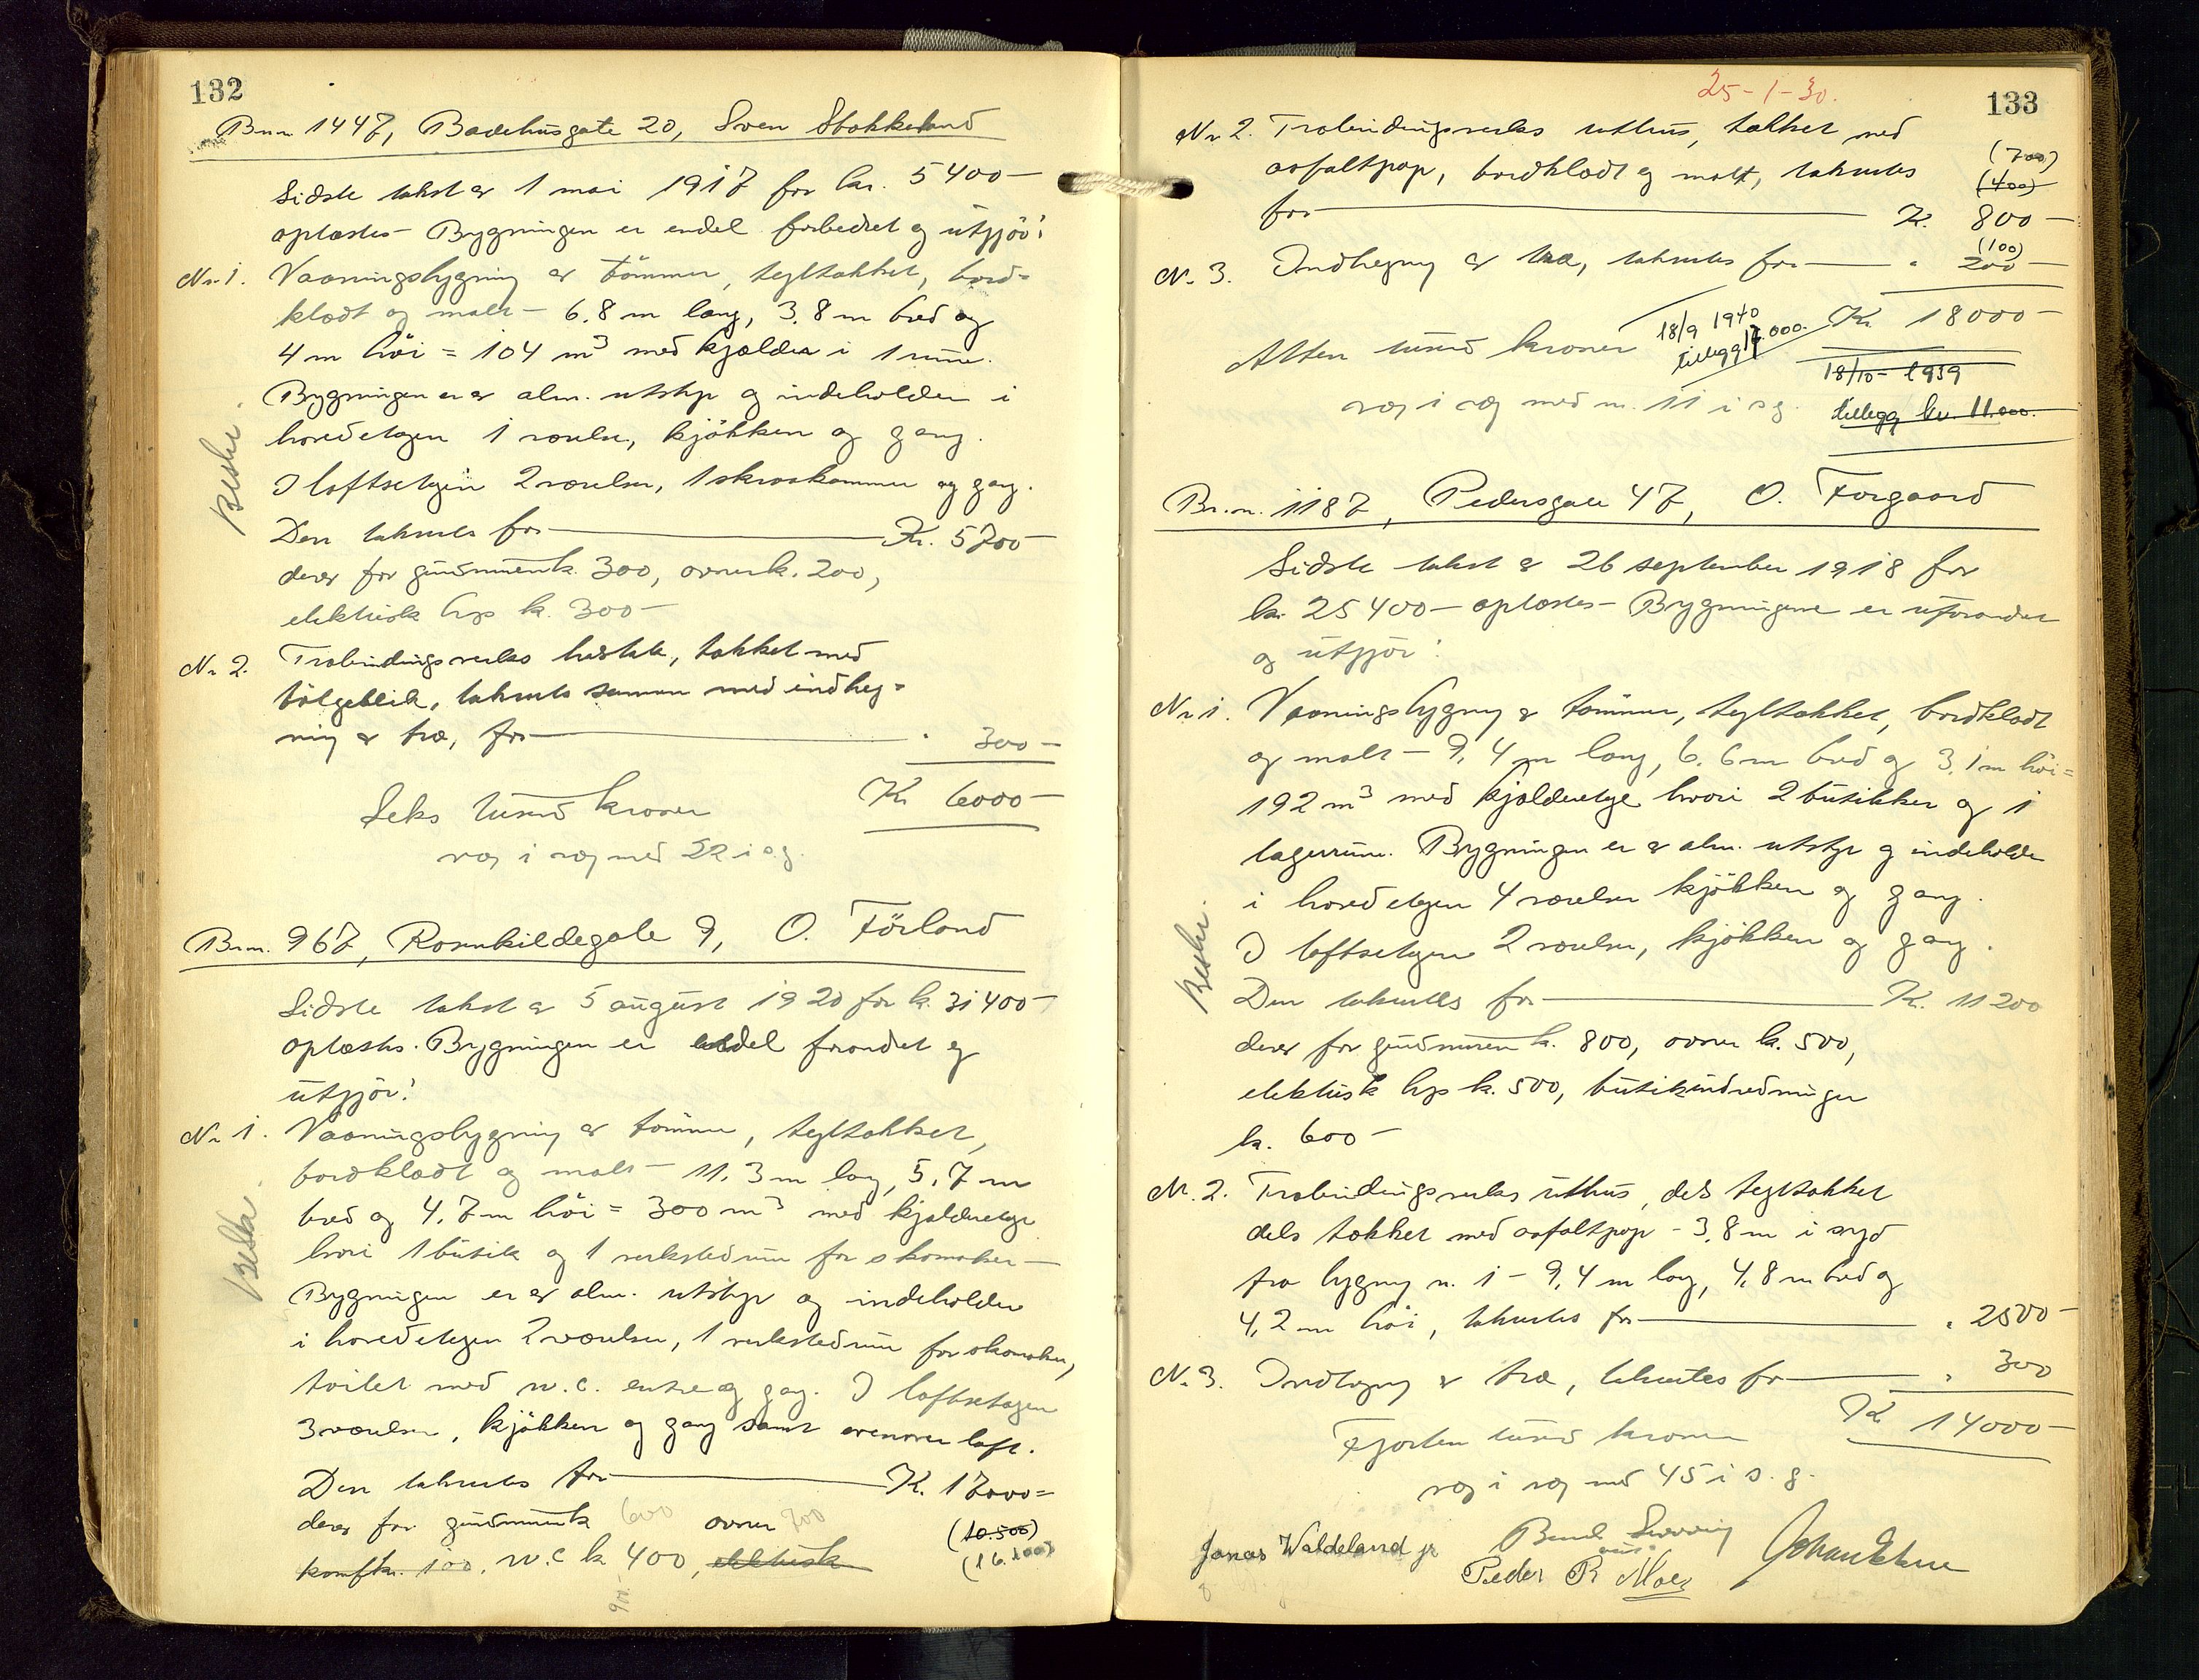 132
Brnr 1447, Badehusgate 20, Sven Stokkeland
Sidste takst av 1 mai 1917 for kr. 5400-
oplæstes - Bygningen er endel forbedret og utgjör:
Nr. 1. Vaaningsbygning av tömmer, tegltækket, bord-
klædt og malt - 6.8 m lang, 3.8 m bred og
4 m höi = 104 m³ med kjælder i 1 rum.
Bygningen er av alm. utstyr og indeholder i
hovedetagen 1 værelse, kjökken og gang.
I loftsetagen 2 værelser, 1 skraakammer og gang.
Den takseres for Kr. 5700-
derav for grundmuren k. 300, ovner k. 200,
elektrisk lys k. 300-
Nr 2. Træbindingsverks , tækket med
bölgeblik, takseres sammen med indheg-
ning av træ, for " 300-
Seks tusind kroner Kr 6000-
vog i vog med 22 i s.g.
Br.nr. 967, Rosenkildegate 9, O. Förland
Sidste takst av 5 august 1920 for k. 31400-
oplæstes. Bygningen er endel forandret og
utgjör:
Nr 1. Vaaningsbygning av tömmer, tegltækket,
bordklædt og malt - 11.3 m lang, 5.7 m
bred og 4.7 m höi = 300 m³ med kjælderetage
hvori 1 butik og 1 verkstedrum for skomaker -
Bygningen er av alm. utstyr og indeholder
i hovedetagen 2 værelser, 1 verkstedrum for skomaker,
toilet med w.c. entre og gang. I loftsetagen
3 værelser, kjökken og gang samt ovenover loft.
Den takseres for K. 17000=
derav for grundmur k 600 ovner 700 (10.500)
komfk. 100, w.c k 400, elektrisk (16.100)
900.-
25-1-30.
133
Nr 2. Træbindingsverks uthus, tækket med
asfaltpap, bordklædt og malt, takseres (700)
(400)
for K. 800-
(100)
Nr. 3. Indhegning av træ, takseres for " 200-
Atten tusind kroner 18/9 1940 Kr. 18000-
tillegg 17.000.
18/10- 1939
vog i vog med nr. 11 i s.g. tillegg kr. 11.000.
Br.nr. 1187, Pedersgate 47, O. Forgaard
Sidste takst av 26 september 1918 for
kr. 25400- oplæstes - Bygningene er uforandret
og utgjör:
Nr 1. Vaaningsbygning av tömmer, tegltækket, bordklædt
og malt - 9,4 m lang, 6.6 m bred og 3.1 m höi =
192 m³ med kjælderetage hvori 2 butikker og 1
lagerrum. Bygningen er av alm. utstyr og indeholder
i hovedetagen 4 værelser kjökken og gang.
I loftsetagen 2 værelser, kjökken og gang.
Den takseres for K. 11200
derav for grundmuren k. 800, ovner k. 500,
elektrisk lys k. 500, butikindredninger
k. 600-
Nr. 2. Træbindingsverks uthus, dels tegltækket
dels tækket med asfaltpap - 3,8 m i syd
fra bygning nr. 1 - 9,4 m lang, 4,8 m bred og
4,2 m höi, takseres for " 2500-
Nr. 3. Indhegning av træ, takseres for " 300
Fjorten tusind kroner Kr 14000-
vog i vog med 45 i s.g.
Jonas Waldeland jr
Peder R Moe